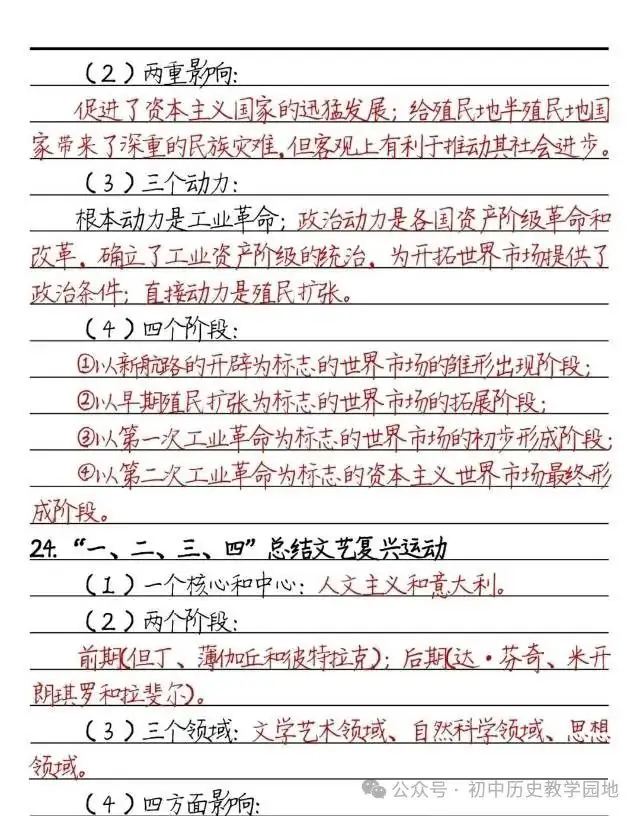 （2）两重影响：
促进了资本主义国家的迅猛发展；给殖民地半殖民地国
家带来了深重的民族灾难，但客观上有利于推动其社会进步。
（3）三个动力：
根本动力是工业革命；政治动力是各国资产阶级革命和
改革，确立了工业资产阶级的统治，为开拓世界市场提供了
政治条件；直接动力是殖民扩张。
（4）四个阶段：
①以新航路的开辟为标志的世界市场的雏形出现阶段；
②以早期殖民扩张为标志的世界市场的拓展阶段；
③以第一次工业革命为标志的世界市场的初步形成阶段；
④以第二次工业革命为标志的资本主义世界市场最终形
成阶段。
24.“一、二、三、四”总结文艺复兴运动
（1）一个核心和中心：人文主义和意大利。
（2）两个阶段：
前期(但丁、薄伽丘和彼特拉克)；后期(达·芬奇、米开
朗琪罗和拉斐尔)。
（3）三个领域：文学艺术领域、自然科学领域、思想
领域。
（4）四方面影响：
公众号·初中历史教学园地